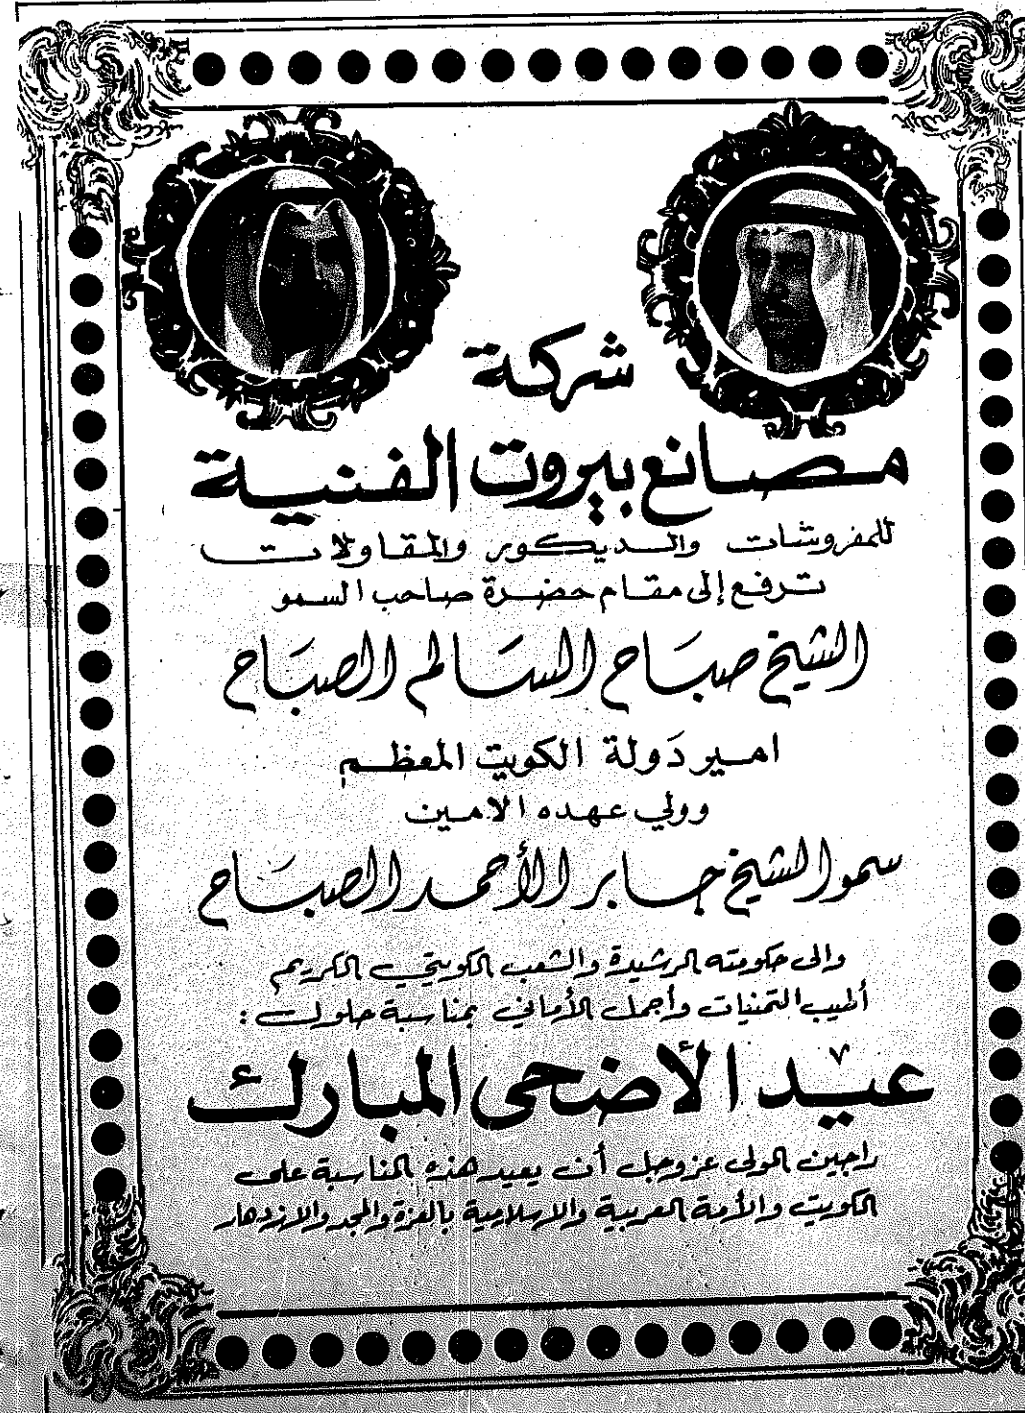 شركة
مصانع بيروت الفنية
للمفروشات والديكور والمقاولات
ترفع إلى مقام حضرة صاحب السمو
الشيخ صباح السالم الصباح
امير دولة الكويت المعظم
وولي عهده الامين
سمو الشيخ جابر الأحمد الصباح
والى حكومته الرشيدة والشعب الكويتي الكريم
أطيب التمنيات وأجمل الأماني بمناسبة حلول :
عيد الأضحى المبارك
راجين المولى عز وجل أن يعيد هذه المناسبة على
الكويت والأمة العربية والاسلامية بالعزة والمجد والازدهار